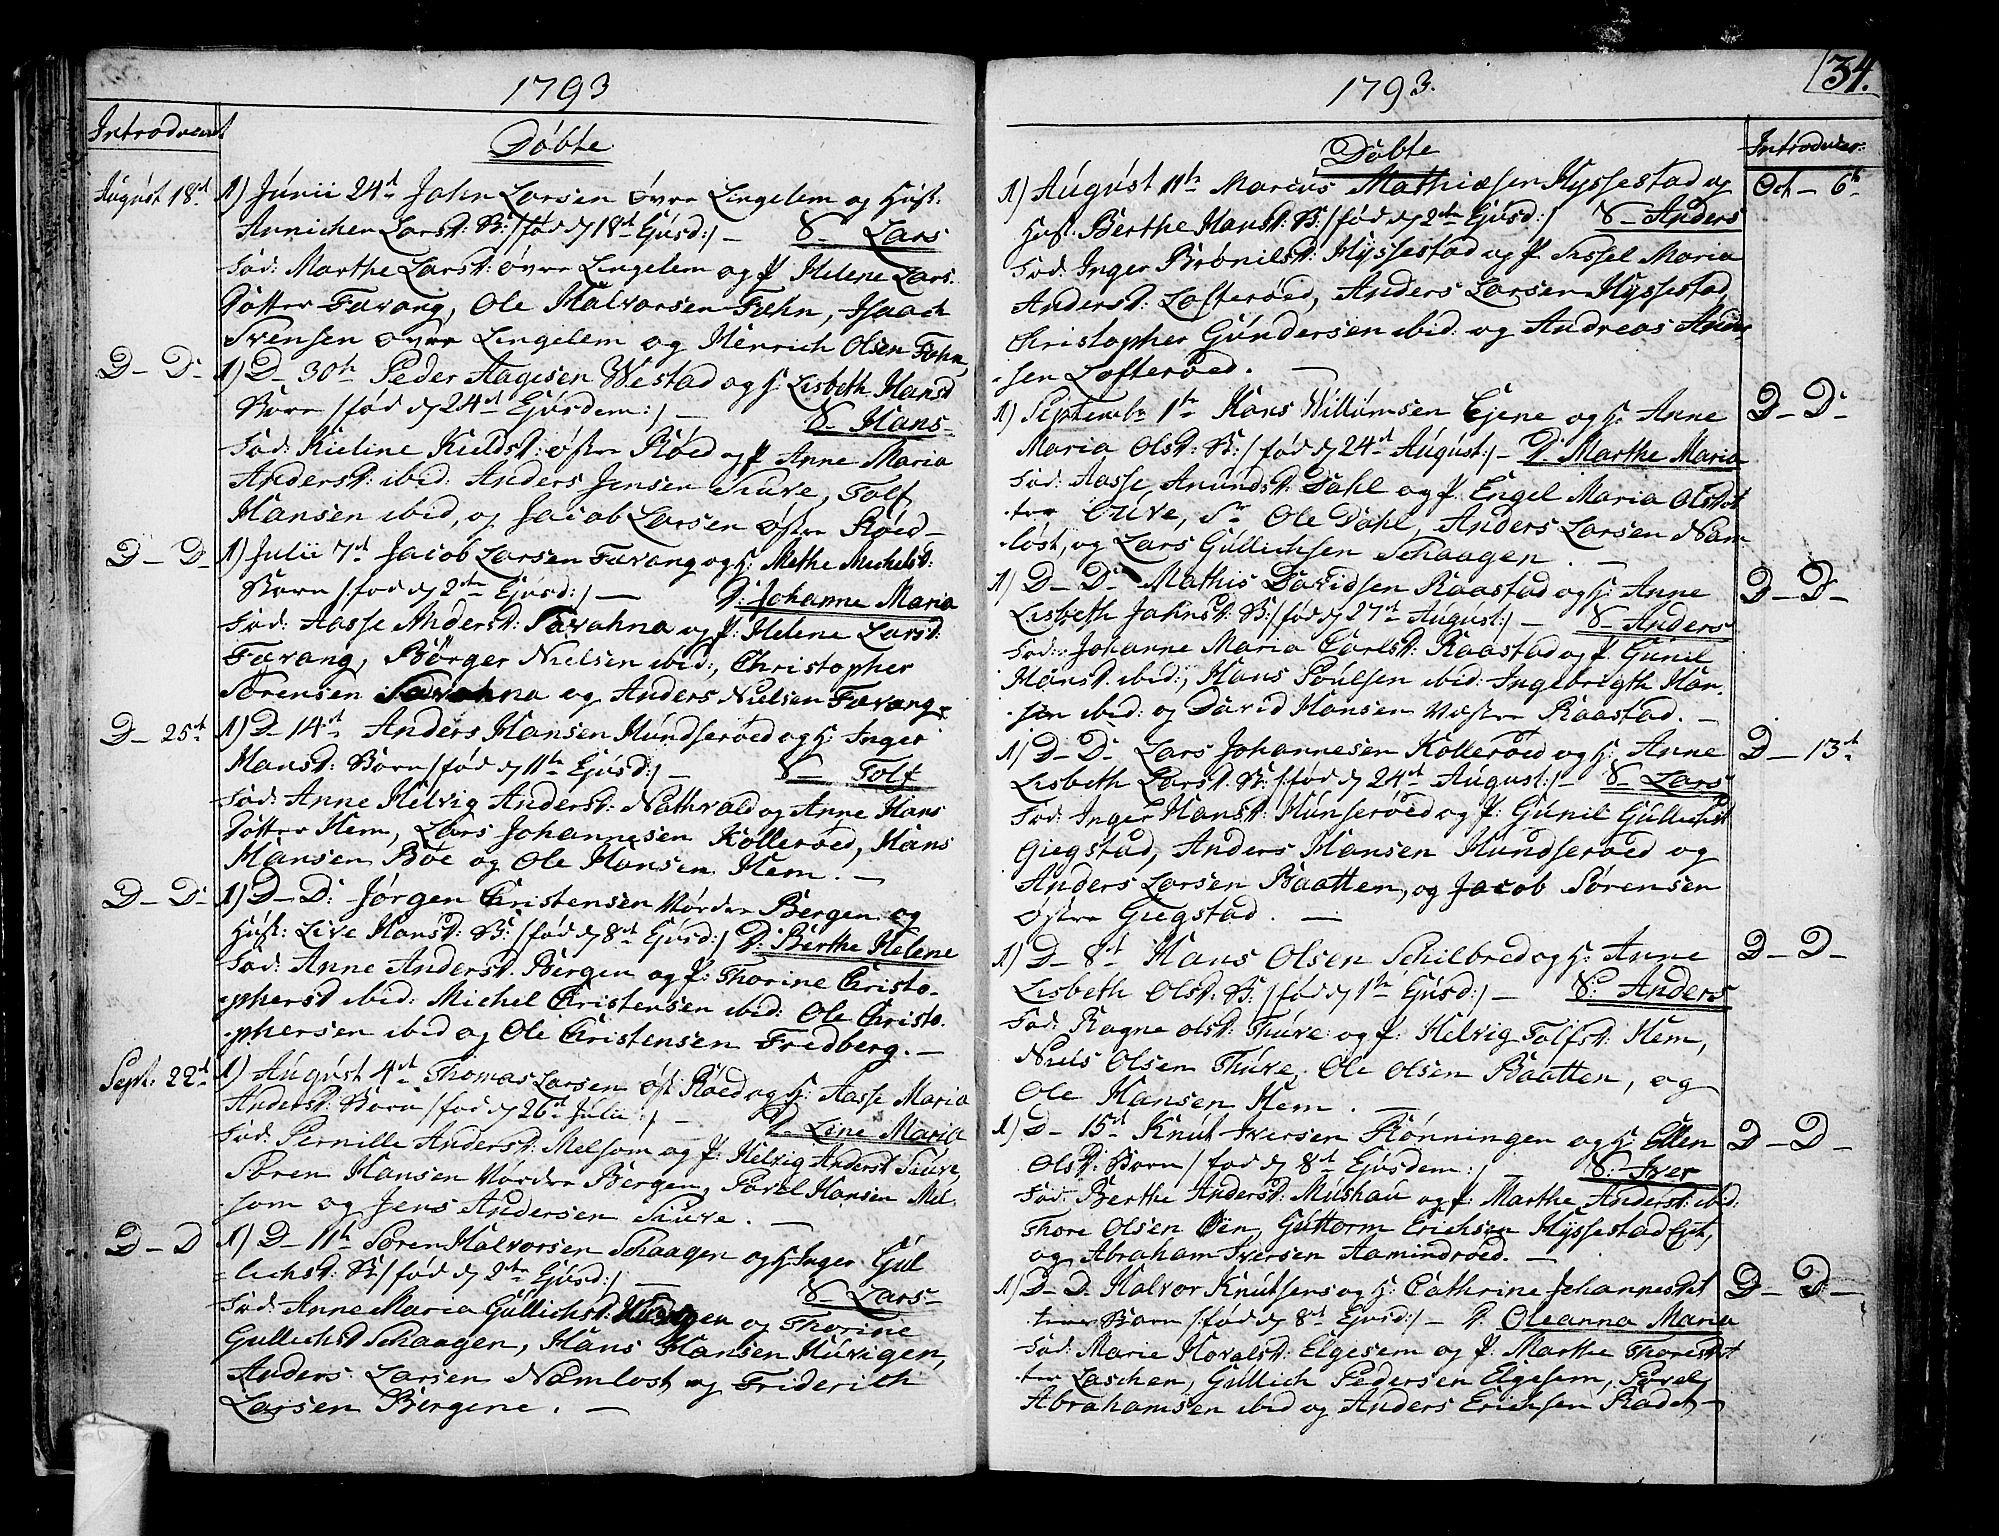 1793
Introducert
Döbte
August 18d 1) Junii 24d John Larsen övre Lingelem og Hust:
Annichen Larsd: B: /:fød d 18d Ejusd:/ — S– Lars
Fad: Marthe Larsd: övre Lingelem og P. Helene Lars
dotter Farvang, Ole Halvorsen Fæhn, Isaach
Svensen övre Lingelem og Henrich Olsen Fæhn,
D– D– 1) D– 30te Peder Aagesen Westad og H: Lisbeth Hansd
Barn /:fød d 24d Ejusdem:/ — S– Hans–
Fad: Kieline Kieldsd: öfre Röed og P Anne Maria
Andersd: ibid: Anders Jensen Siuve, Tolf
Hansen ibid, og Jacob Larsen öfre Röed–
D– D– 1) Julii 7d Jacob Larsen Farvang og H: Methe Michelsd:
Barn /:fød d 2den Ejusd:/ — D: Johanne Maria
Fad: Aasse Andersd: Tavahna og P: Helene Larsd:
Farvang, Börger Nielsen ibid:, Christopher
Sörensen Tavahna og Anders Nielsen Farvang.
D– 25d 1) D– 14d Anders Hansen Hundseröed og H: Inger
Hansd: Barn /:fød d 11te Ejusd:/ — S– Tolf
Fad: Anne Helvig Andersd: Nathvald og Anne Hans
dotter Hem, Lars Johannesen Kolleröed, Hans
Hansen Böe og Ole Hansen Hem. —
D– D– 1) D– D: Jörgen Christensen Nordre Bergen og
Hust: Live Hansd: B: /:fød d 8d Ejusd:/ D: Berthe Helene
Fad: Anne Andersd: Bergen og P: Thorine Christo-
phersd ibid: Michel Christensen ibid: Ole Christo-
phersen ibid og Ole Christensen Fredberg. —
Sept: 22d 1) August 4d Thomas Larsen öst: Röed og H: Aasse Maria
Andersd: Barn /:fød d 26d Julii:/ — D– Line Maria
Fad: Pernille Andersd: Melsom og P: Helvig Andersd Siuve,
Sören Hansen Nordre Bergen, Povel Hansen Mel-
som og Jens Andersen Siuve. —
D– D 1) D– 11te Sören Halvorsen Schaagen og H: Inger Gul
lichsd: B: /:fød d 2den Ejusd:/ — S– Lars–
Fad: Anne Maria Gullichsd: Huvigen og Thorine
Gullichsd Schaagen, Hans Hansen Huvigen,
Anders Larsen Namlost og Friderich
Larsen Bergene. —
1793.
34.
Döbte
Introducer:
1) August 11te Marius Mathiæsen Hyssestad og Oct– 6te
Hust. Berthe Hansd: B: /:fød d 2den Ejusd:/ S– Anders
Fad: Inger Brönilsd: Hyssestad og P. Sissel Maria
Andersd: Lofteröed, Anders Larsen Hyssestad
Christopher Gundersen ibid: og Andreas Ander
sen Lofteröed. —
1) Septembr 1te Hans Willumsen Ejene og H: Anne D– D–
Maria Olsd: B: /:fød d 24d August:/ — D: Marthe Maria
Fad: Aasse Anundsd: Dahl og P. Engel Maria Olsdot
ter Siuve, Sr Ole Dahl, Anders Larsen Nam
lost, og Lars Gullichsen Schaagen. —
1) D– D– Mathis Davidsen Raastad og H: Anne D– D–
Lisbeth Jahnsd: B: /:fød d 27d August:/ — S– Anders
Fad: Johanne Maria Carlsd: Raastad og P. Gunil
Hansd. ibid:, Hans Poulsen ibid: Ingebrigth Han-
sen ibid: og David Hansen Vestre Raastad. —
1) D– D– Lars Johannesen Kolleröed og H: Anne D– 13d
Lisbeth Larsd: B: /:fød d 24d August:/ — S– Lars
Fad: Inger Hansd: Hunseröed og P: Gunil Gullichsd
Giegstad, Anders Hansen Hundseröed og
Anders Larsen Baatten, og Jacob Sörensen
östre Giegstad. —
1) D– 8d Hans Olsen Schilbred og H: Anne D– D–
Lisbeth Olsd: B: /:fød d 1te Ejusd:/ — S: Anders
Fad: Ragne Olsd: Thuve: og P: Helvig Tolfsd: Hem,
Niels Olsen Thuve, Ole Olsen Baatten, og
Ole Hansen Hem. —
1) D– 15d Knut Iversen Rönningen og H: Ellen D– D–
Olsd: Barn /:fød d 8d Ejusdem:/ — S: Iver
Fad: Berthe Andersd: Mushau og P: Marthe Andersd: ibid:
Thore Olsen Öen, Guttorm Erichsen Hyssestad Ejet,
og Abraham Iversen Aamindröed. —
1) D– D. Halvor Knutsens og H: Cathrine Johannesdot D– D–
ters Barn /:fød d 8d Ejusd:/ — D: Oleanna Maria
Fad: Marie Hovalsd: Elgesem og P: Marthe Thoresdot
ter Laschen, Gullich Pedersen Elgesem, Povel
Abrahamsen ibid og Anders Erichsen Rödet —